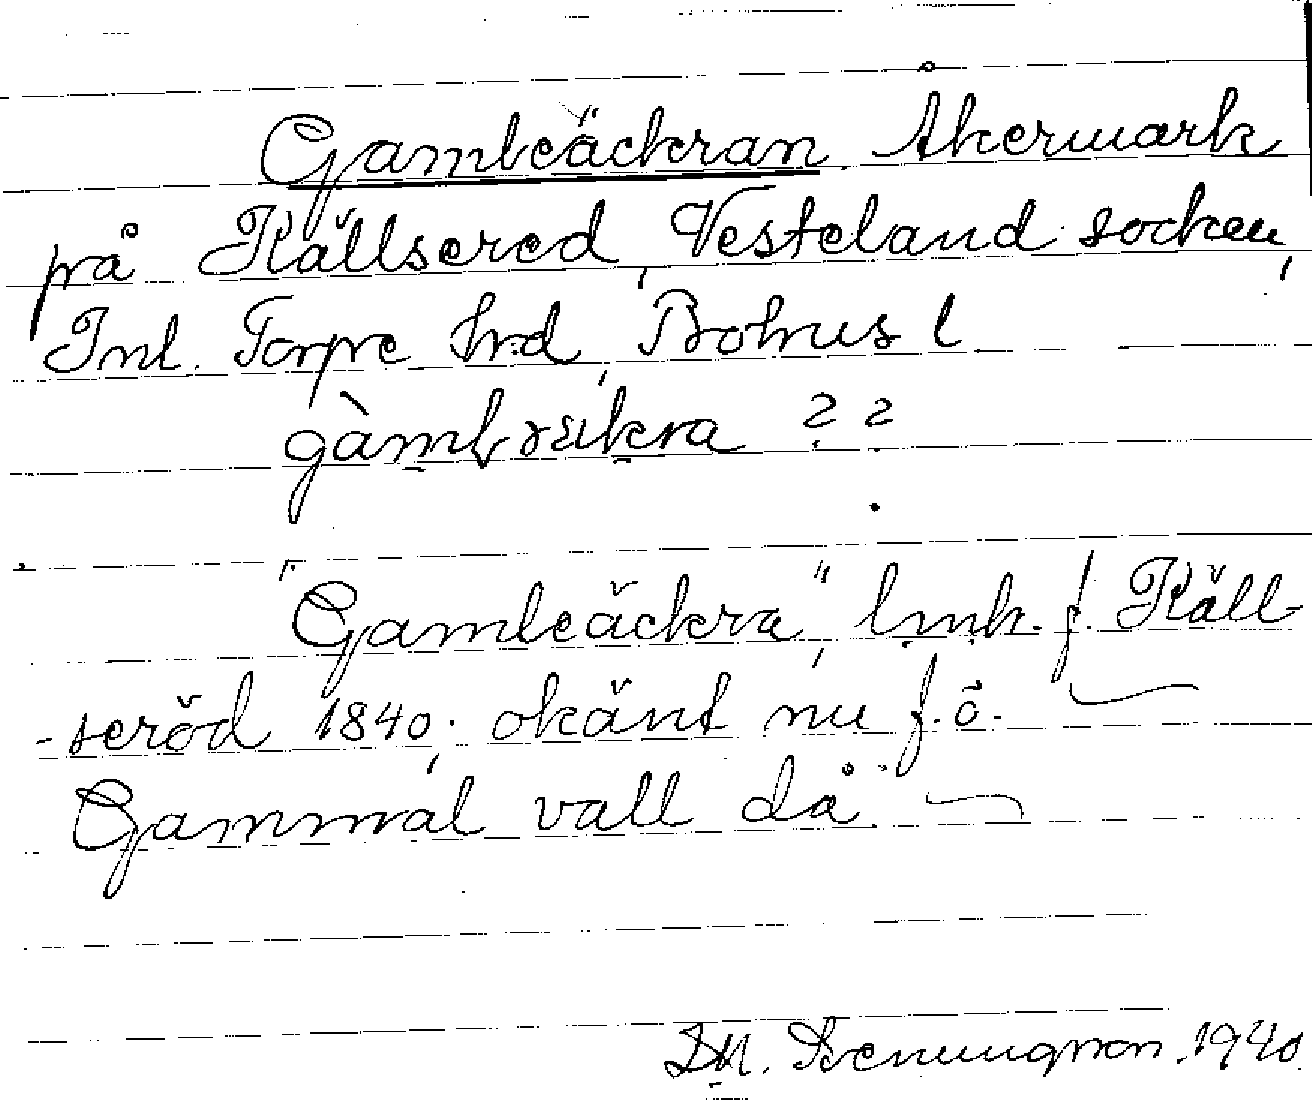 Gamleäckran Åkermark
på Källsered, Vesteland socken,
Inl. Torpe hrd, Bohus l
gàmlxækra ??
"Gamleäckra", lmk. f. Käll-
-seröd 1840, okänt nu f.ö.
Gammal vall då
1940